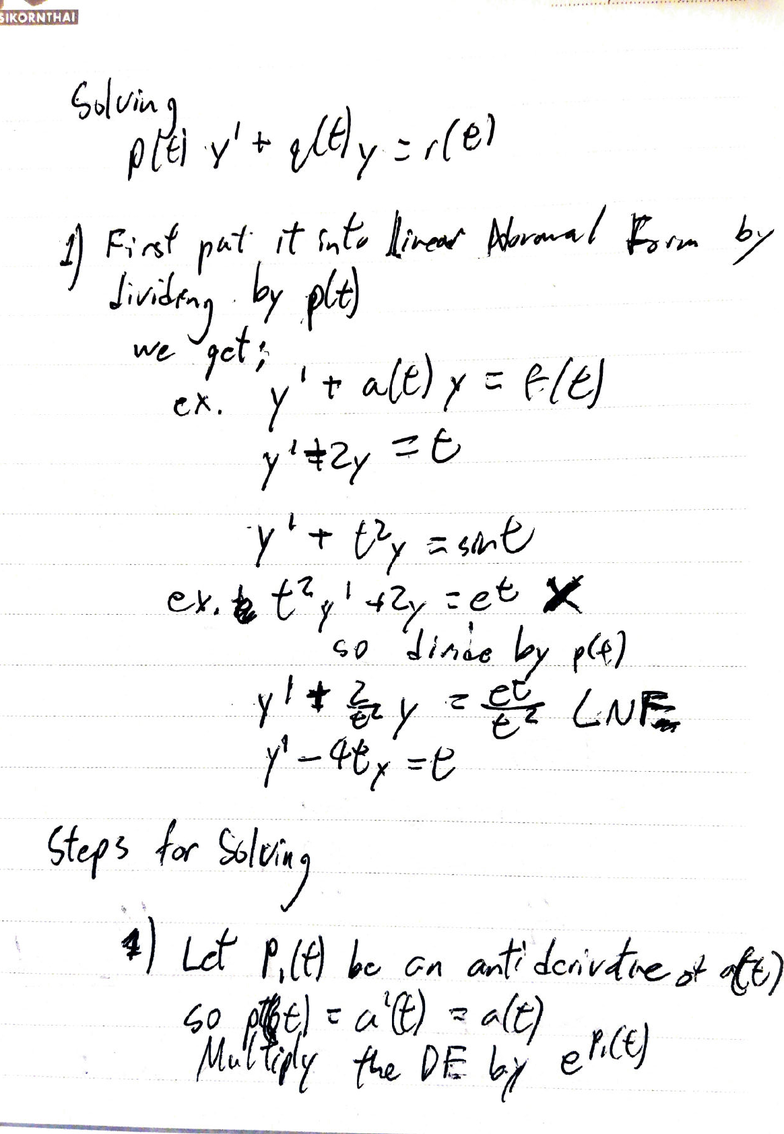 SIKORNTHAI
Solving
p(t) y' + q(t) y = r(t)
1) First put it into linear Normal Form by
dividing by p(t)
we get;
ex. y' + a(t) y = f(t)
y' + 2y = t
y' + t²y = sin t
ex. t²y' + 2y = e^t X
so divide by p(t)
y' + 2/t² y = e^t/t² LNF
y' - 4ty = t
Steps for Solving
1) Let P₁(t) be an antiderivative of a(t)
so p(t) = a'(t) = a(t)
Multiply the DE by e^P₁(t)